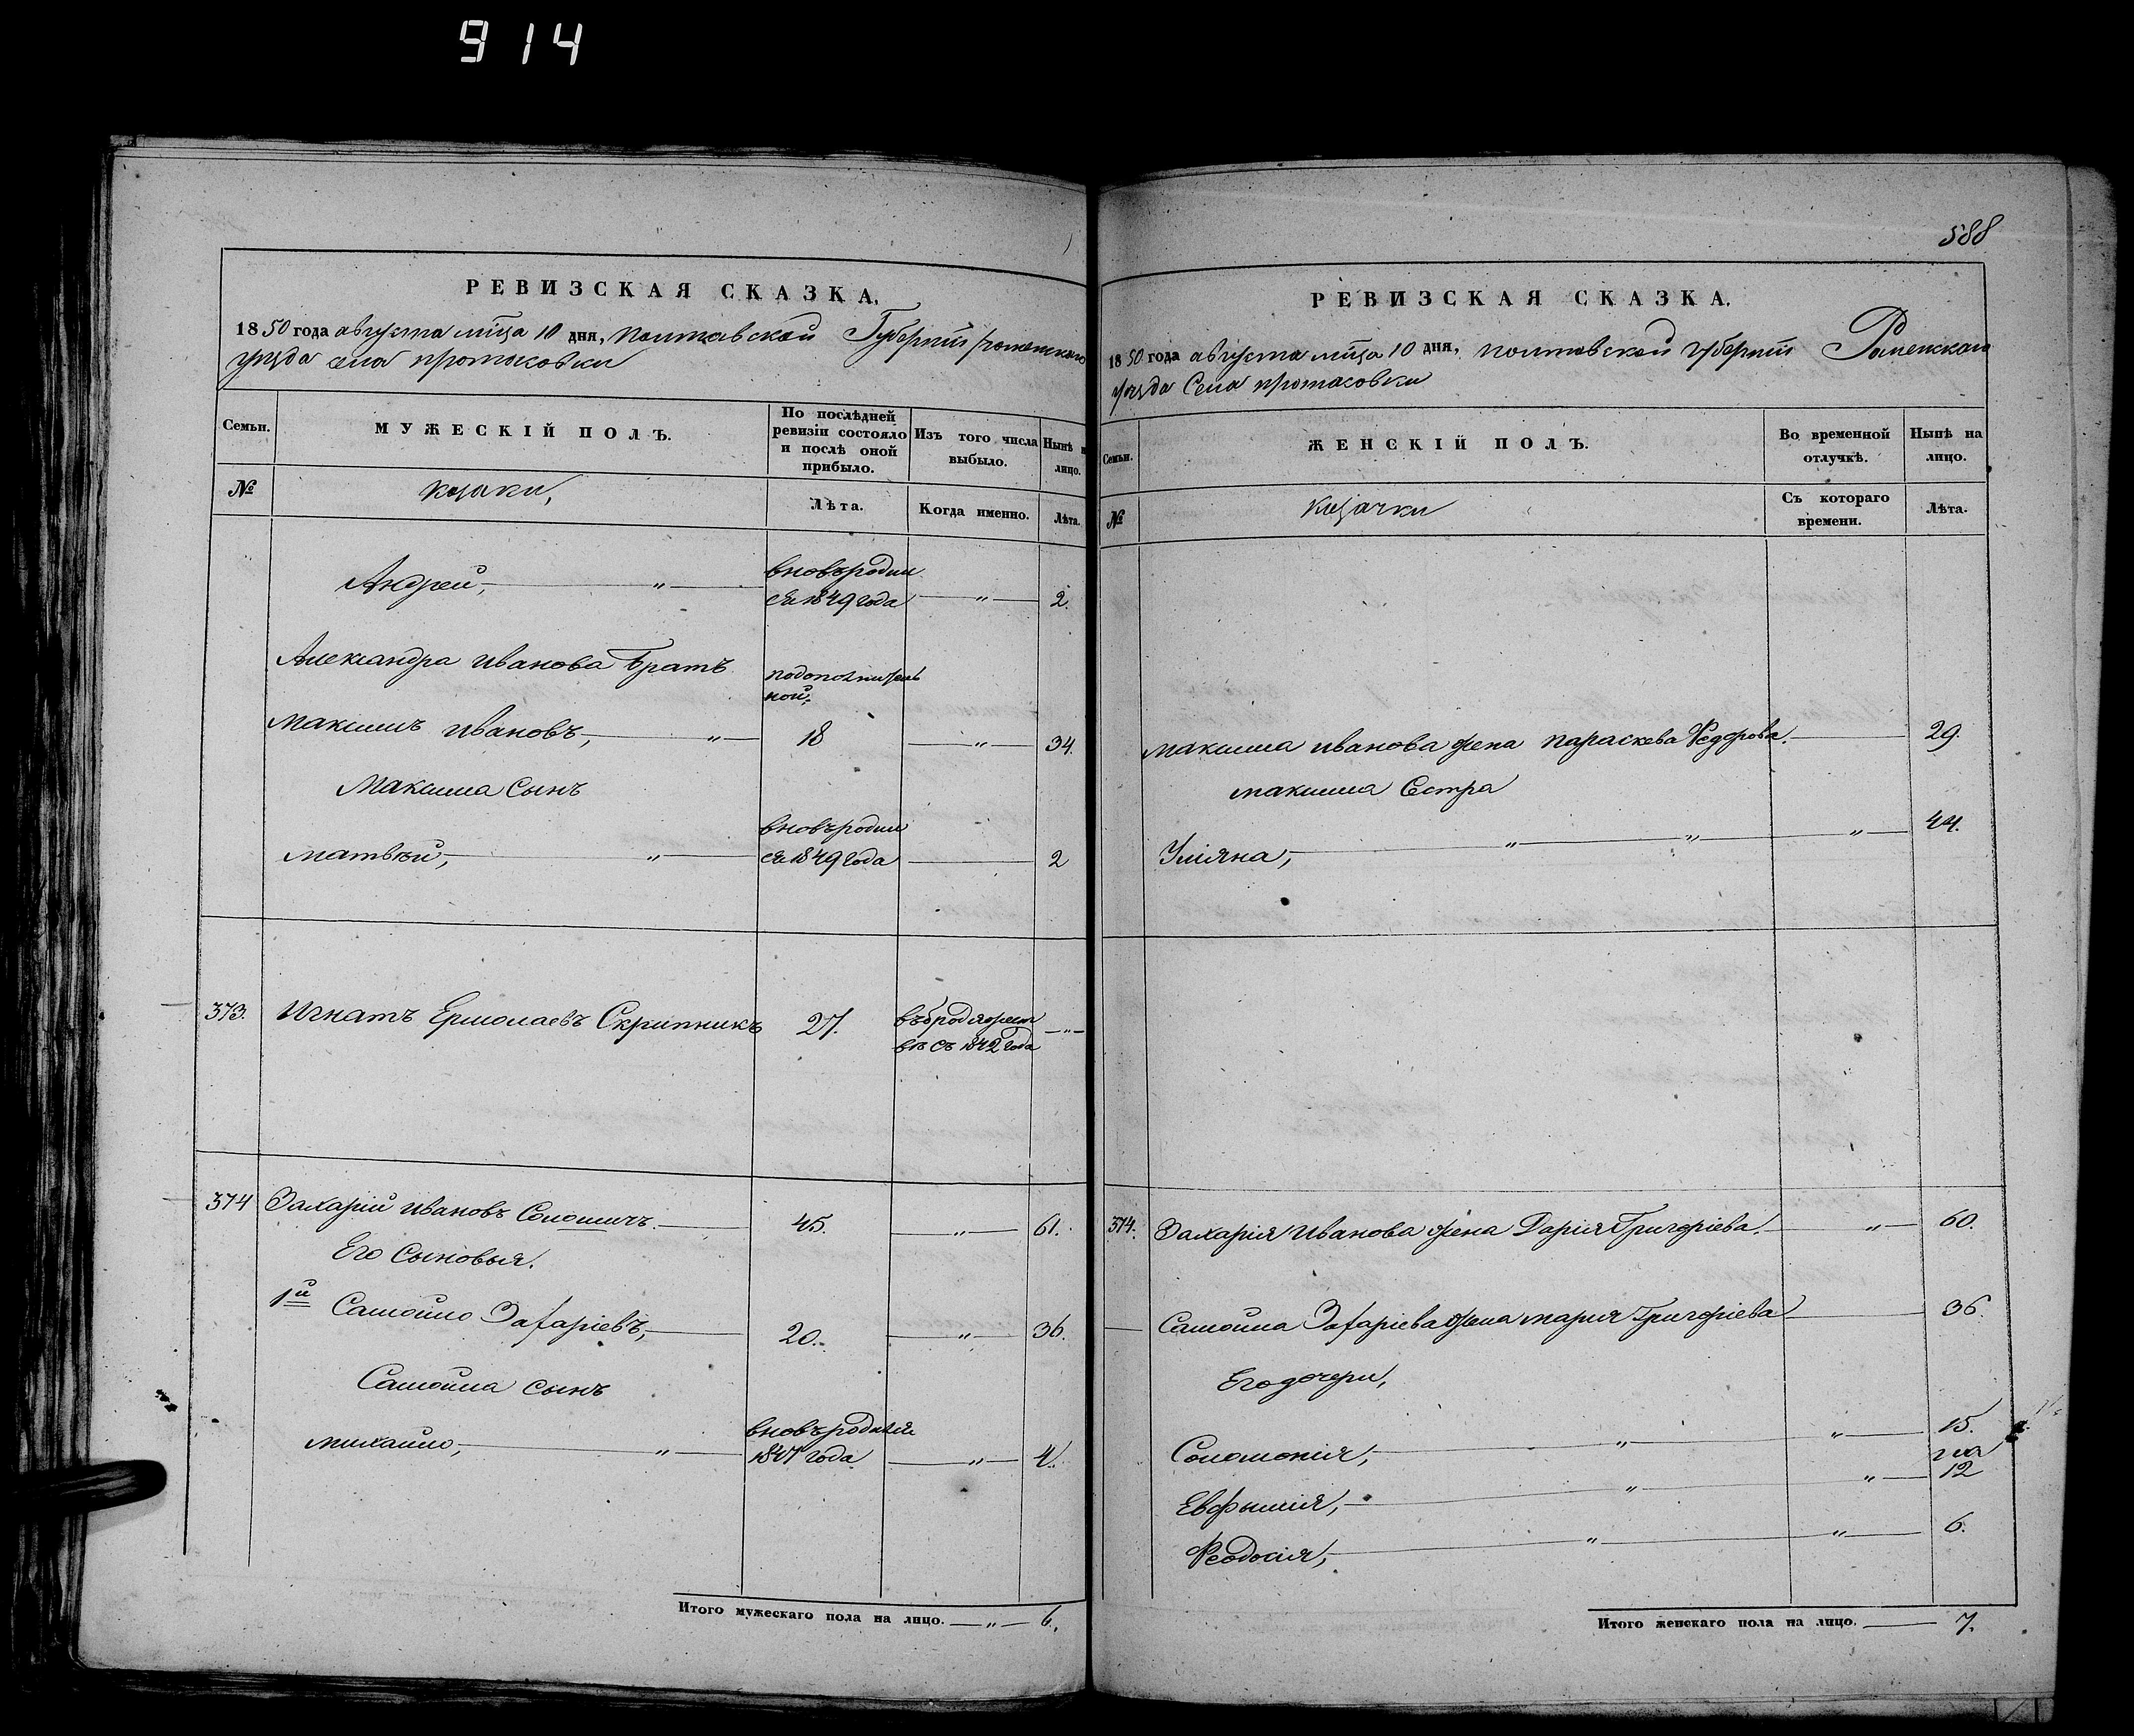 914
РЕВИЗСКАЯ СКАЗКА.
1850 года августа мца 10 дня, полтавской Губернии роменскаго
уезда села протасовки
Семьи.
МУЖЕСКІЙ ПОЛЪ.
По послѣдней ревизіи состояло и послѣ оной прибыло.
Изъ того числа выбыло.
Нынѣ н лицо.
№
козаки,
Лѣта.
Когда именно.
Лѣта.
Андрей, — " — вновь родил
ся 1849 года — " — 2.
Александра Иванова братъ
по дополнитель
ной,
Максимъ Ивановъ, — " — 18 — " — 34.
Максима Сынъ
вновь родил
матвѣй, — " — ся 1849 года — 2
373. Игнатъ Ермолаевъ Скрипникъ 27. въ бродяжест — " —
вѣ съ 1842 года
374 Захарій Ивановъ Соломичъ. — 45. — " — 61.
Его Сыновья.
1й Самойло Захаріевъ, — 20. — " — 36.
Самойла сынъ
вновь родился
михайло, — " — 1847 года — " — 4.
Итого мужескаго пола на лицо. — " — 6.
588
РЕВИЗСКАЯ СКАЗКА.
1850 года августа мца 10 дня, полтавской губернии Роменскаго
уезда Села протасовки
Семьи.
ЖЕНСКІЙ ПОЛЪ.
Во временной отлучкѣ.
Нынѣ на лицо.
№
козачки
Съ котораго времени.
Лѣта.
максима иванова жена параскева Федорова. — 29.
максима Сестра
Уліяна, — " — " — " — 44.
374. Захарія Иванова жена Дарія Григоріева. — " — 60.
Самойла Захаріева жена мария Григоріева — 36.
Его дочери,
Соломонія, — " — " — 15.
Евфымія, — " — " — 12
Феодосія, — " — " — 6.
Итого женскаго пола на лицо. — 7.